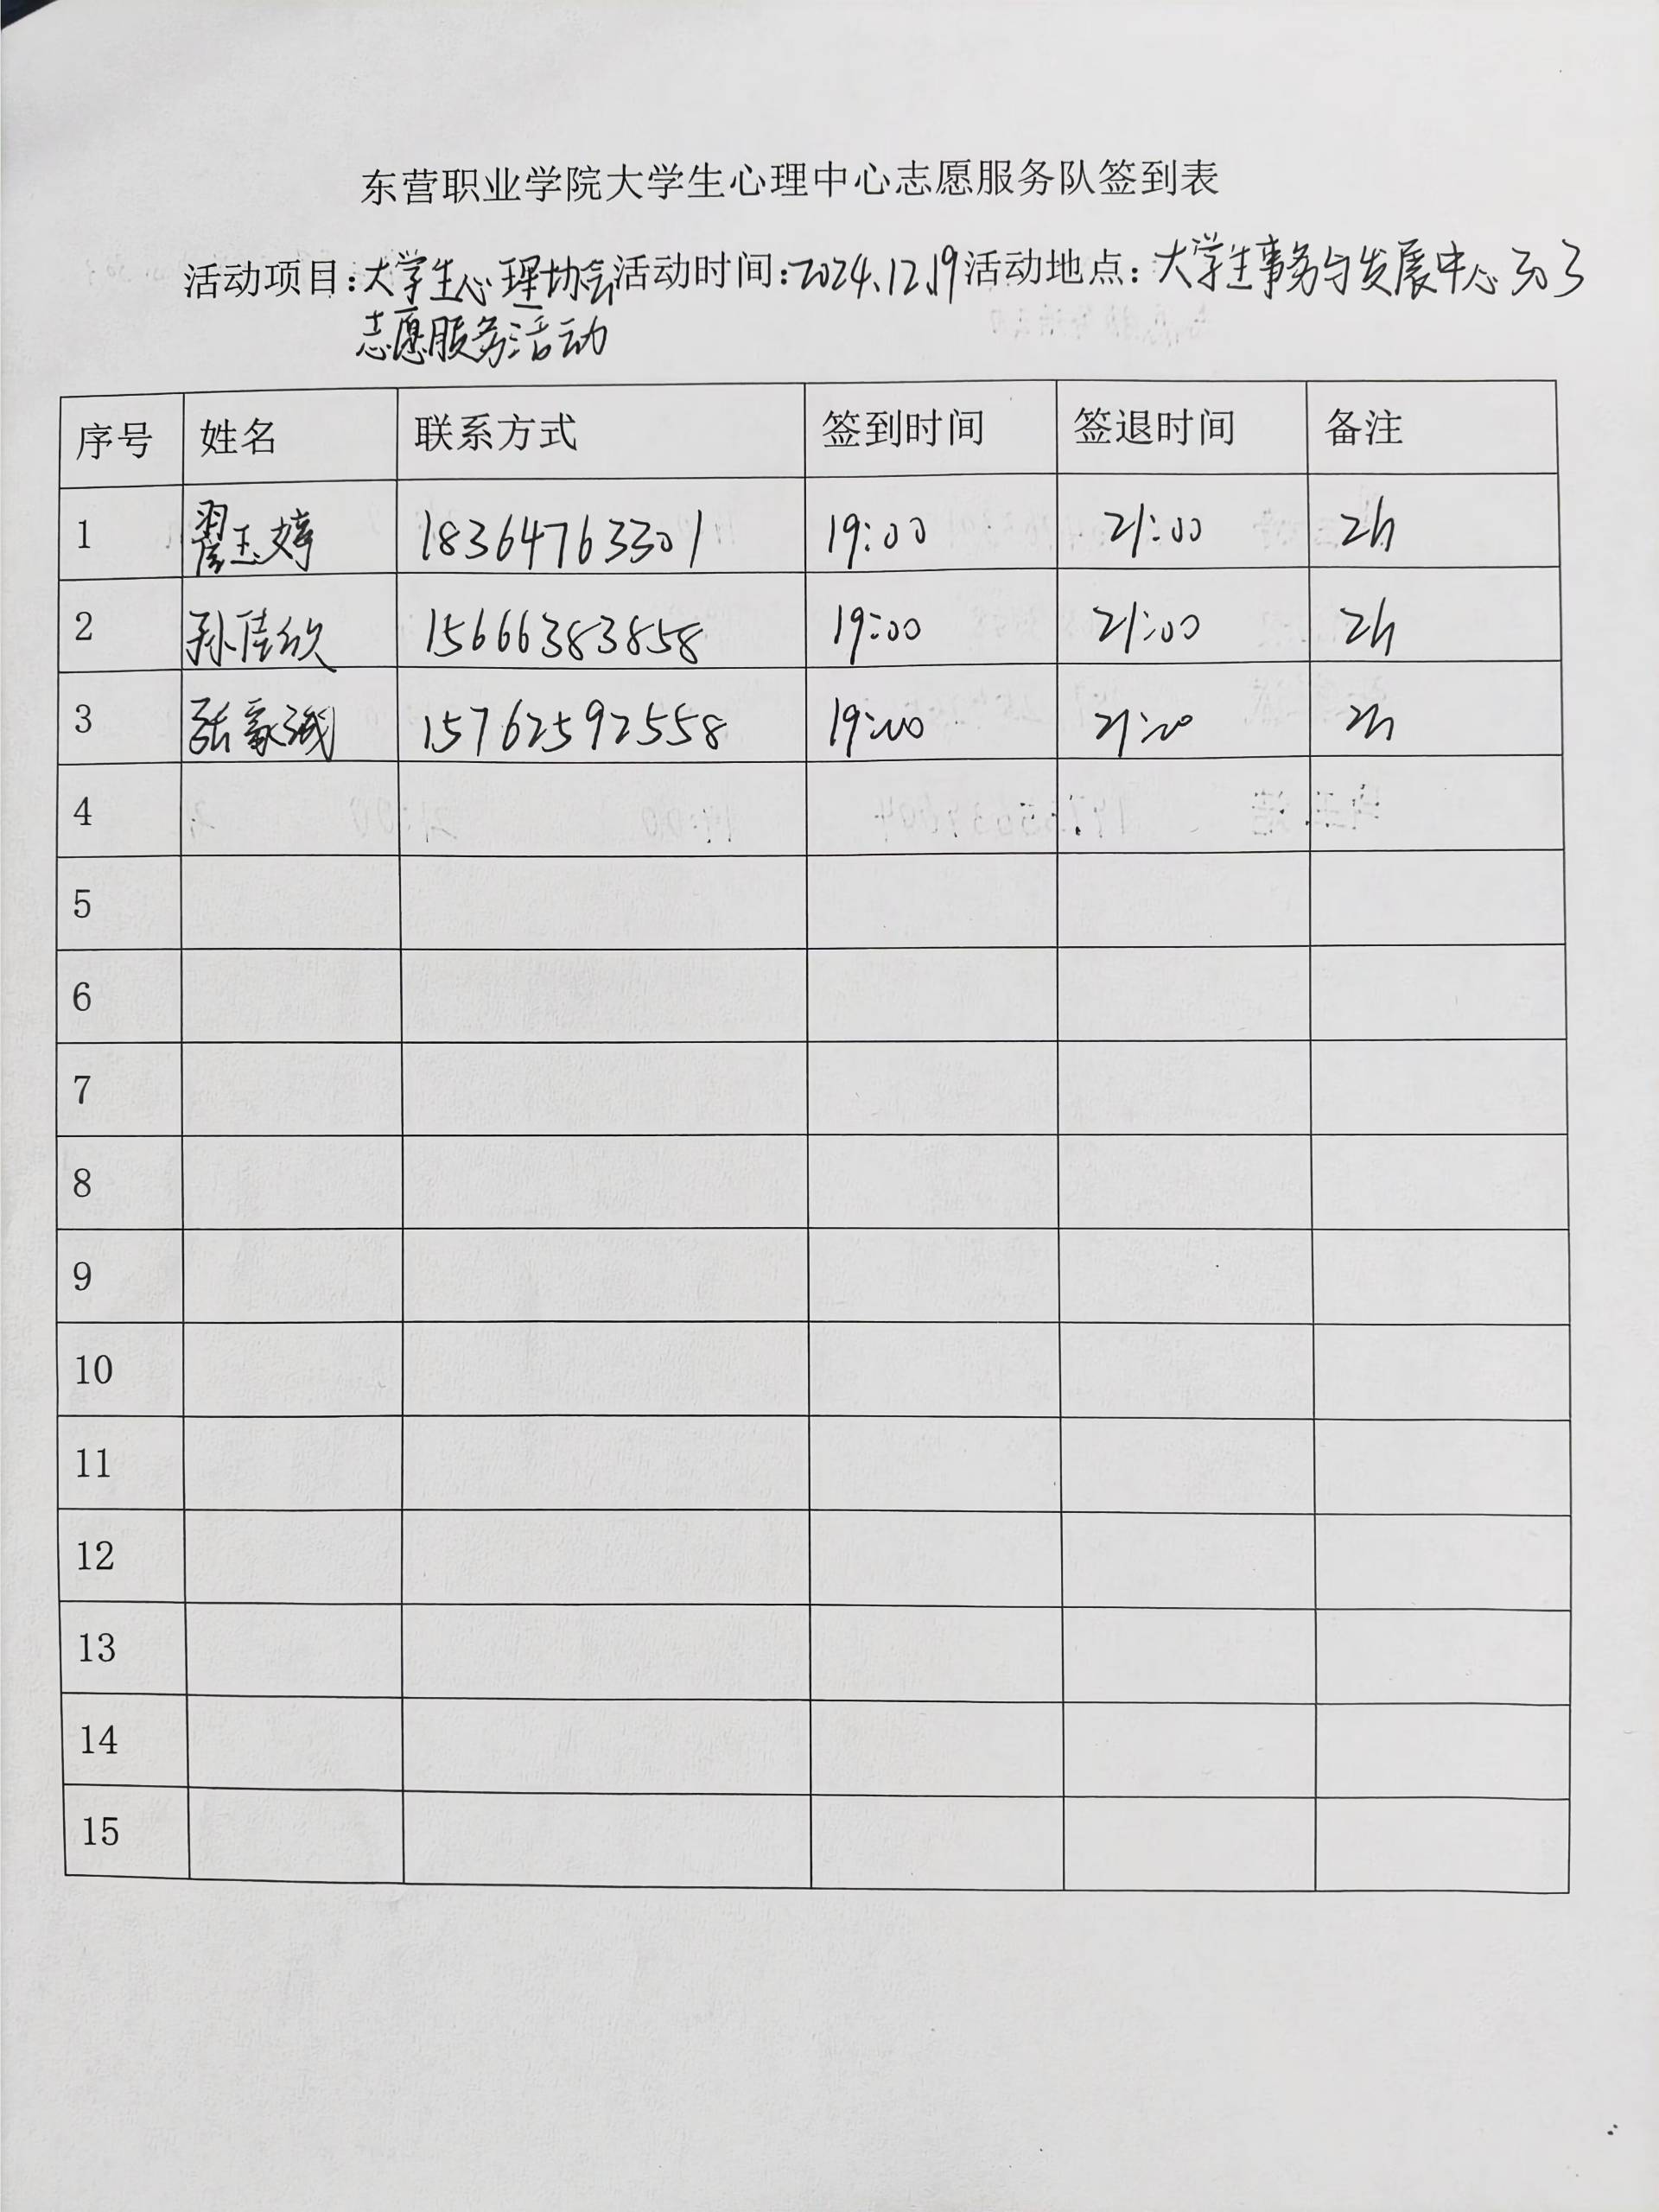 东营职业学院大学生心理中心志愿服务队签到表
活动项目:大学生心理协会活动时间:2024.12.19活动地点:大学生事务与发展中心303
志愿服务活动
序号 姓名 联系方式 签到时间 签退时间 备注
1 翟玉婷 18364763301 19:00 21:00 2h
2 孙佳欣 15666383858 19:00 21:00 2h
3 张家诚 15762592558 19:00 21:00 2h
4
5
6
7
8
9
10
11
12
13
14
15